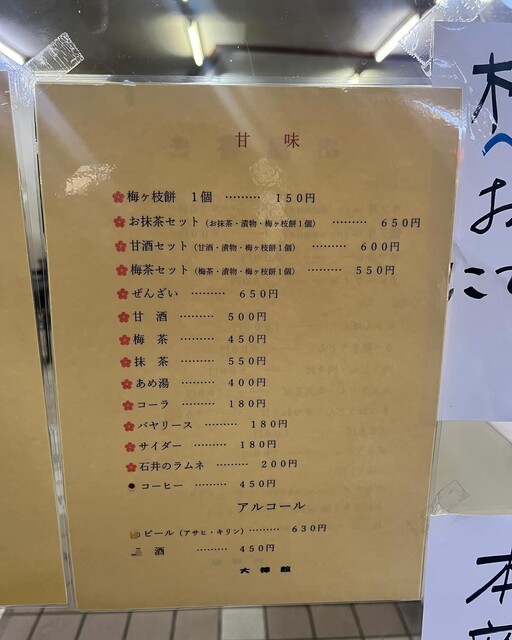 甘味
梅ヶ枝餅 1個 ‥‥‥‥ 150円
お抹茶セット(お抹茶・漬物・梅ヶ枝餅1個) ‥‥‥‥ 650円
甘酒セット(甘酒・漬物・梅ヶ枝餅1個) ‥‥‥‥ 600円
梅茶セット(梅茶・漬物・梅ヶ枝餅1個) ‥‥‥‥ 550円
ぜんざい ‥‥‥‥ 650円
甘酒 ‥‥‥‥ 500円
梅茶 ‥‥‥‥ 450円
抹茶 ‥‥‥‥ 550円
あめ湯 ‥‥‥‥ 400円
コーラ ‥‥‥‥ 180円
バヤリース ‥‥‥‥ 180円
サイダー ‥‥‥‥ 180円
石井のラムネ ‥‥‥‥ 200円
コーヒー ‥‥‥‥ 450円
アルコール
ビール(アサヒ・キリン)‥‥‥‥ 630円
酒 ‥‥‥‥ 450円
お
にて
本